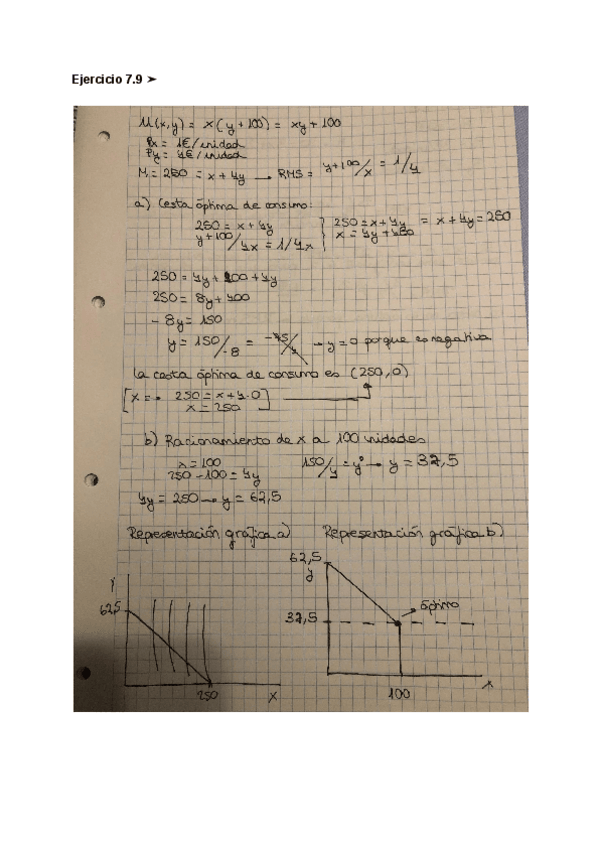 Ejercicio 7.9 ➤
U(x,y) = x(y+100) = xy+100
Px = 1€/unidad
Py = 4€/unidad
M = 250 = x + 4y → RMS = y+100/x = 1/4
a) Cesta óptima de consumo:
250 = x + 4y } 250 = x + 4y = x + 4y = 250
y+100/4x = 1/4x } x = 4y + 400
250 = 4y + 100 + 4y
250 = 8y + 400
-8y = 150
y = 150/-8 = -75/4 → y = 0 porque es negativa
La cesta óptima de consumo es (250,0)
[x = → 250 = x + 4·0
x = 250]
b) Racionamiento de x a 100 unidades
x = 100
250 - 100 = 4y
150/4 = y → y = 37,5
4y = 250 → y = 62,5
Representación gráfica a)
Representación gráfica b)
Y
62,5
250
X
62,5
y
37,5
óptimo
100
X